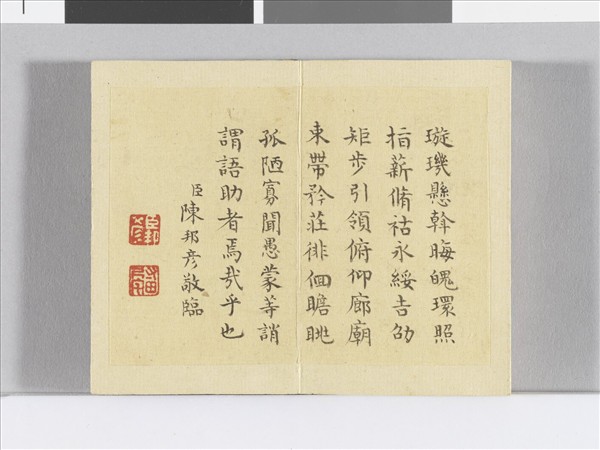 璇璣懸斡晦魄環照
指薪脩祜永綏吉劭
矩步引領俯仰廊廟
束帶矜莊徘徊瞻眺
孤陋寡聞愚蒙等誚
謂語助者焉哉乎也
臣陳邦彥敬臨